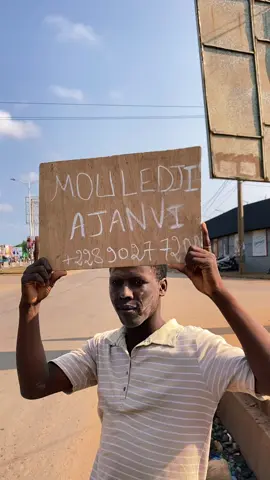 MOULEDJI
AJANVI
+228 90277200